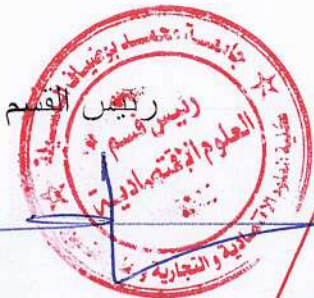 رئيس القسم
جامعة محمد بوضياف المسيلة
رئيس قسم
العلوم الاقتصادية
والتجارية و